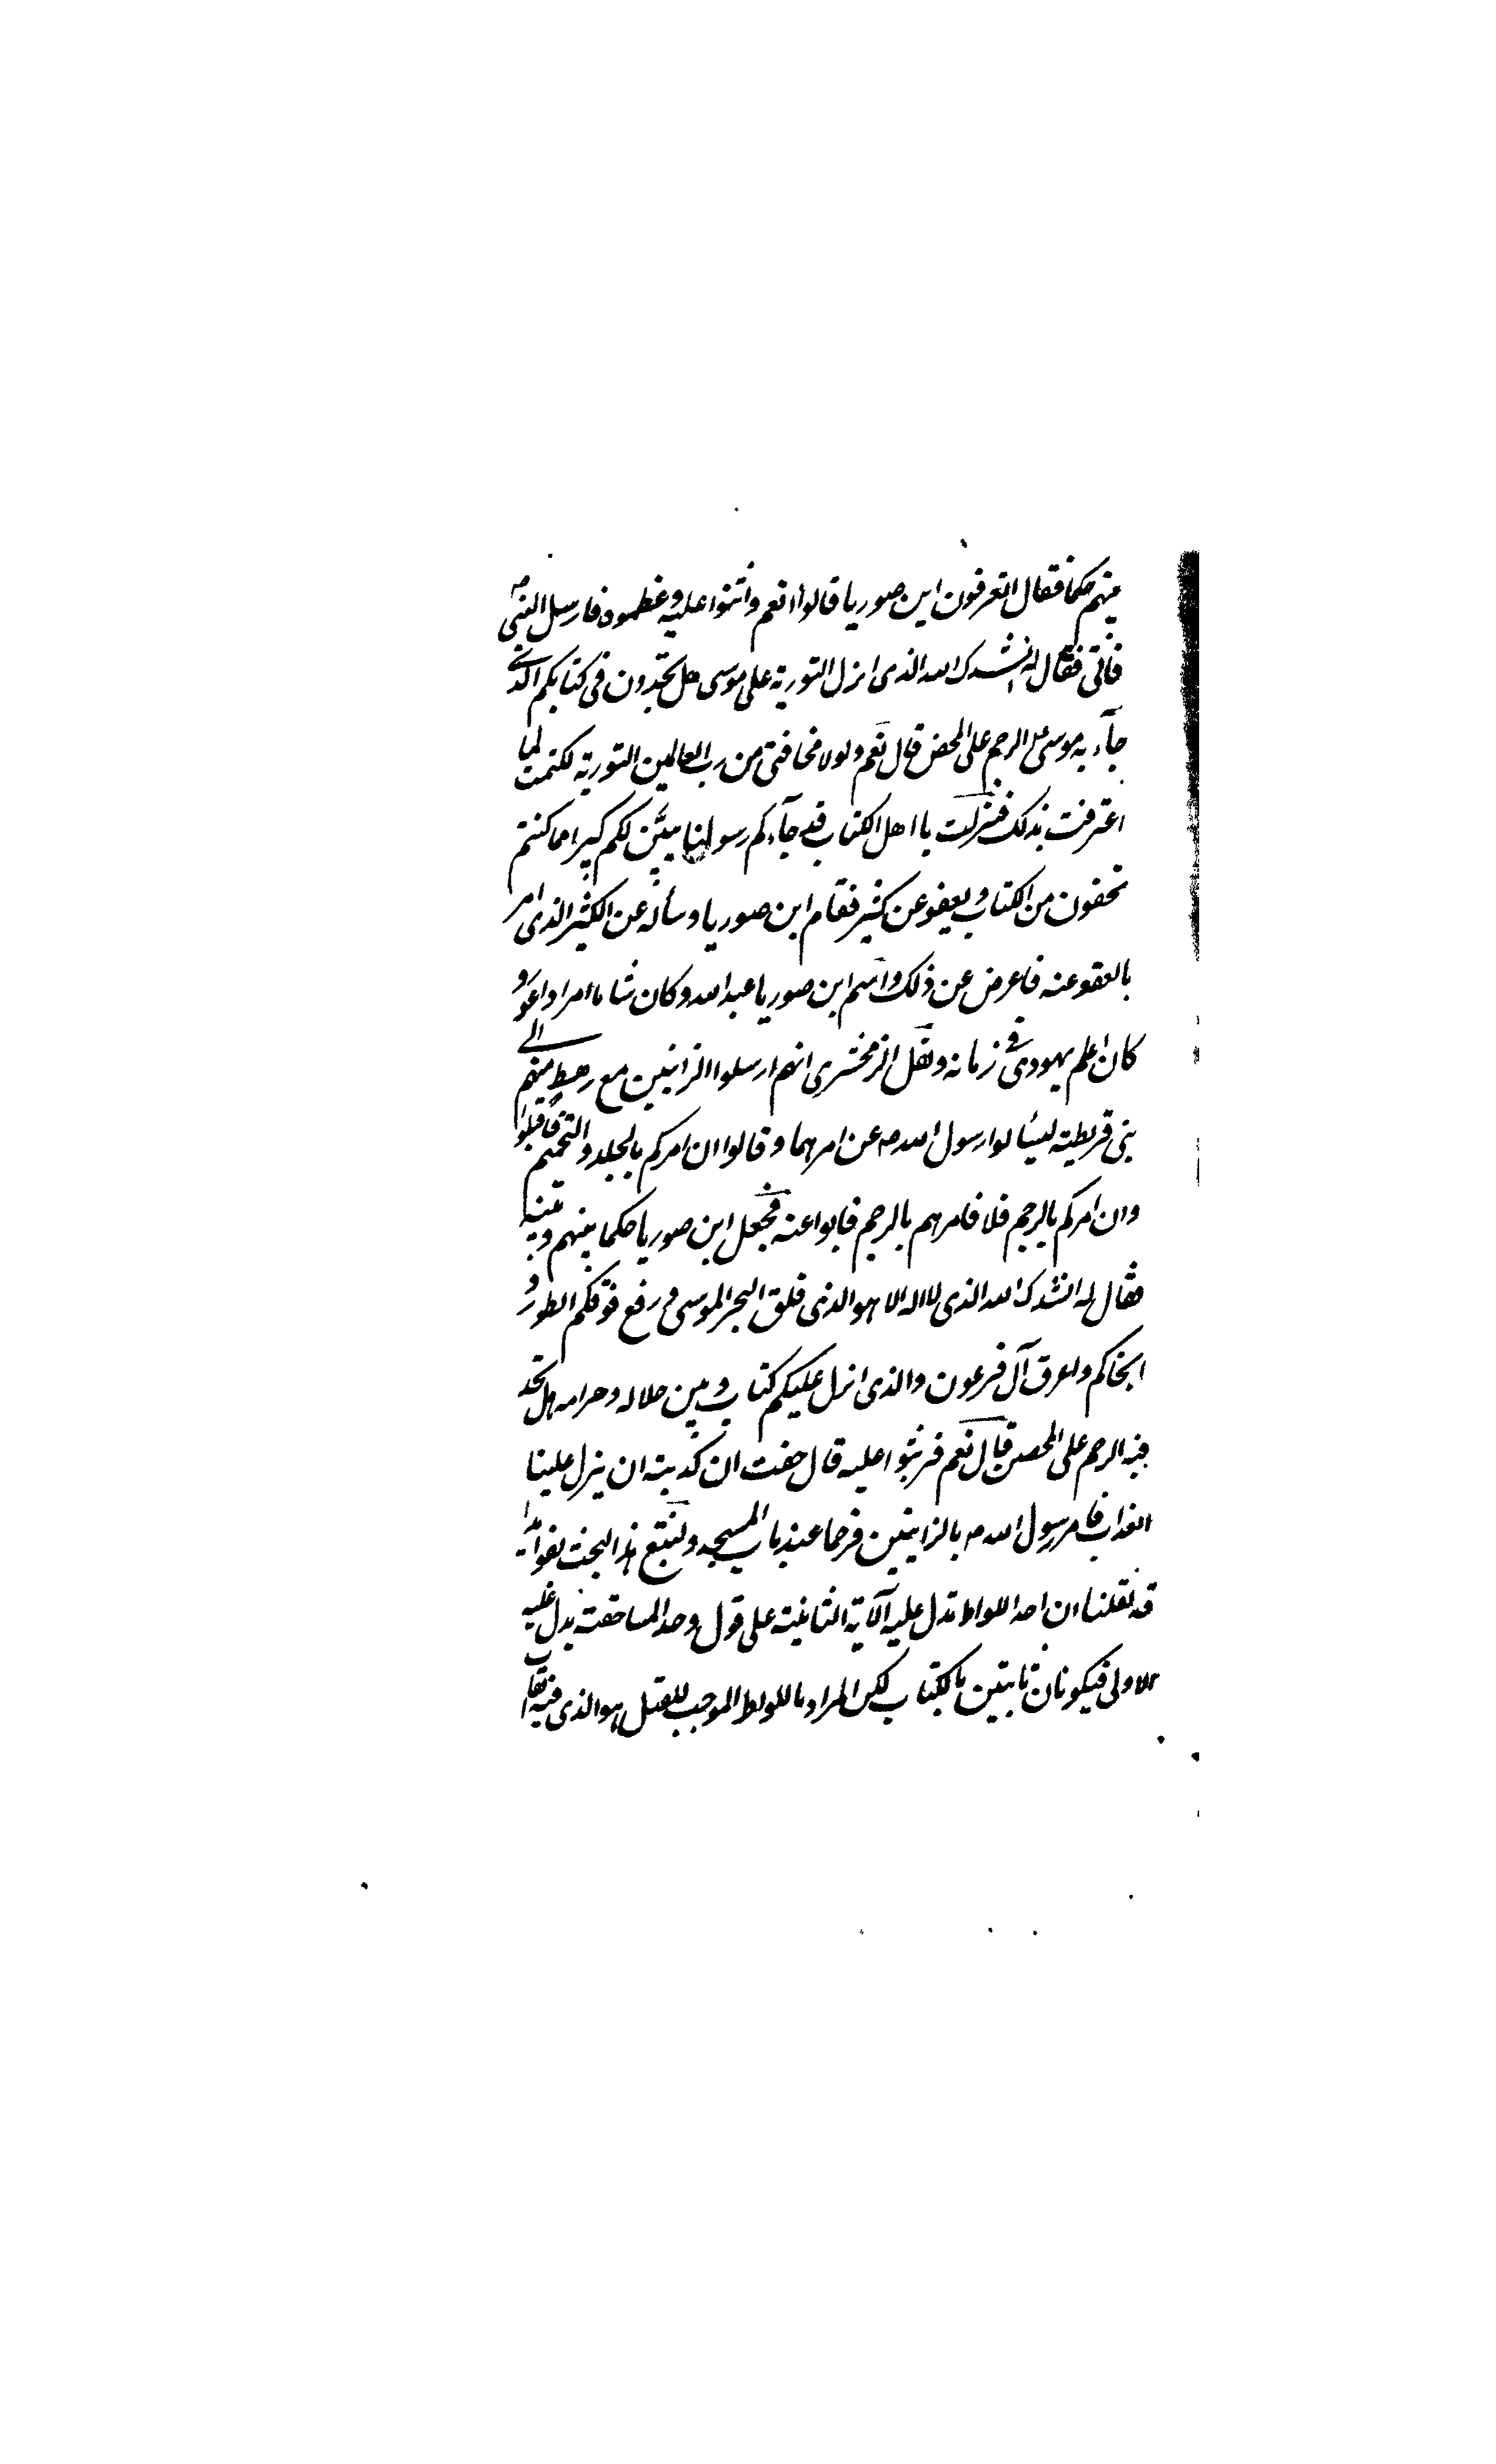 بينهم حكما فقال اتعرفون ابن صوريا قالوا نعم واثنوا عليه وعظموه فارسل النبي ص
فأتى فقال له انشدك الله الذي انزل التورية على موسى هل تجدون في كتابكم الذي
جآء به موسى ع الرجم على المحصن قال نعم ولولا مخافتي من رب العالمين التورية لكتمت لما
اعترفت بذلك فنزلت يا اهل الكتاب قد جآءكم رسولنا يبيّن لكم كثيرا مما كنتم
تخفون من الكتاب ويعفو عن كثير فقام ابن صوريا وسأله عن الكثير الذي امر
بالعفو عنه فاعرض عن ذلك واسم ابن صوريا عبد الله وكان شابا امرد اعور و
كان اعلم يهودي في زمانه ونقل الزمخشري انهم ارسلوا الزانيين مع رهط منهم الى
بني قريظة ليسألوا رسول الله ص عن امرهما وقالوا ان امركم بالجلد والتحميم فاقبلوا
وان امركم بالرجم فلا فامرهم بالرجم فابوا عنه فجعل ابن صوريا حكما بينهم وبينه
فقال له انشدك الله الذي لا اله الا هو الذي فلق البحر لموسى ورفع فوقكم الطور و
انجاكم واغرق آل فرعون والذي انزل عليكم كتابه وبين حلاله وحرامه هل تجد
فيه الرجم على المحصن قال نعم فوثبوا عليه قال خفت ان كذبته ان ينزل علينا
العذاب فامر رسول الله ص بالزانيين فرجما عند باب المسجد ولنتبع هذا البحث بفوايد ا
قد نقلنا ان احد اللواط تدل عليه الآية الثانية على قول وحد المساحقة يدل عليه
الاولى فيكونان ثابتين بالكتاب لكن المراد باللواط الموجب للقتل هو الذي فيه ايقاب